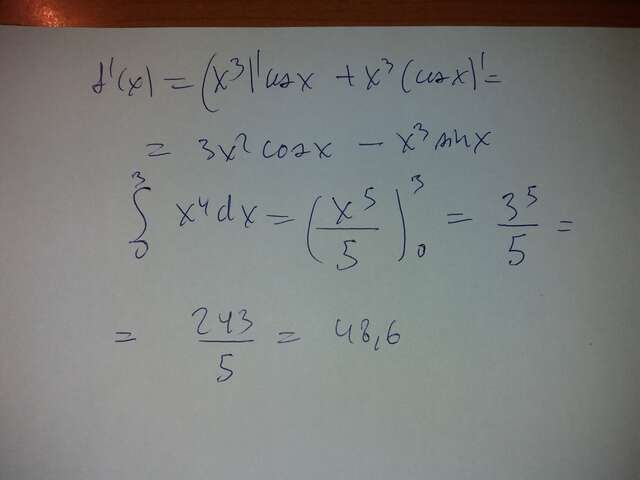 f'(x) = (x³)' cosx + x³ (cosx)' =
= 3x² cosx - x³ sinx
∫₀³ x⁴ dx = (x⁵/5)₀³ = 3⁵/5 =
= 243/5 = 48,6